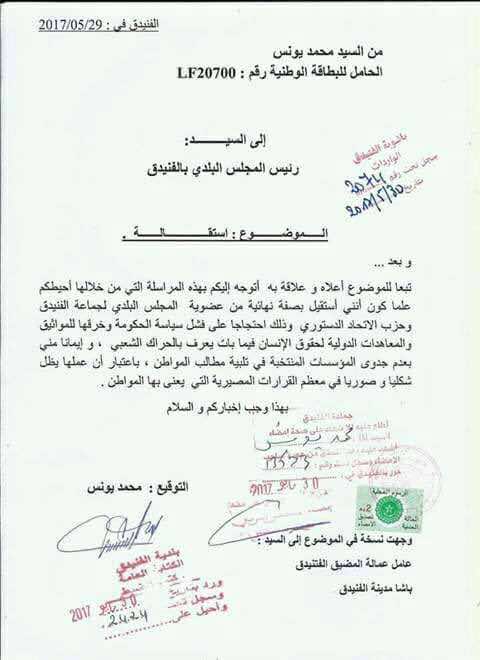 الفنيدق في : 2017/05/29
من السيد محمد يونس
الحامل للبطاقة الوطنية رقم : LF20700
إلى السيـــد:
رئيس المجلس البلدي بالفنيدق
باشوية الفنيدق
الواردات
سجل تحت رقم 2074
بتاريخ 2017/5/30
الـمـوضـــوع : استـقـــالـــة .
و بعد ...
تبعا للموضوع أعلاه و علاقة به أتوجه إليكم بهذه المراسلة التي من خلالها أحيطكم
علما كون أنني أستقيل بصفة نهائية من عضوية المجلس البلدي لجماعة الفنيدق
وحزب الاتحاد الدستوري وذلك احتجاجا على فشل سياسة الحكومة وخرقها للمواثيق
والمعاهدات الدولية لحقوق الإنسان فيما بات يعرف بالحراك الشعبي ، و إيمانا مني
بعدم جدوى المؤسسات المنتخبة في تلبية مطالب المواطن ، باعتبار أن عملها يظل
شكليا و صوريا في معظم القرارات المصيرية التي يعنى بها المواطن .
بهذا وجب إخباركم و السلام
جماعة الفنيدق
محمد يونس
30 ماي 2017
التوقيع : محمد يونس
الرسوم المحلية
وجهت نسخة في الموضوع إلى السيد :
عامل عمالة المضيق الفنيدق
باشا مدينة الفنيدق
بلدية الفنيدق
الكتابة العامة
مكتب الضبط
ورد بتاريخ 30 ماي 2017
وسجل تحت 2424
وأحيل على